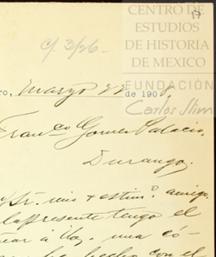 CENTRO DE
ESTUDIOS
DE HISTORIA
DE MEXICO
FUNDACIÓN
Carlos Slim
C/3/26.
o, Marzo 22 de 190
Fran.co Gomez Palacio
Durango.
Sr. mio y estim.o amigo
la presente tengo el
á Ud. una có-
ho con el